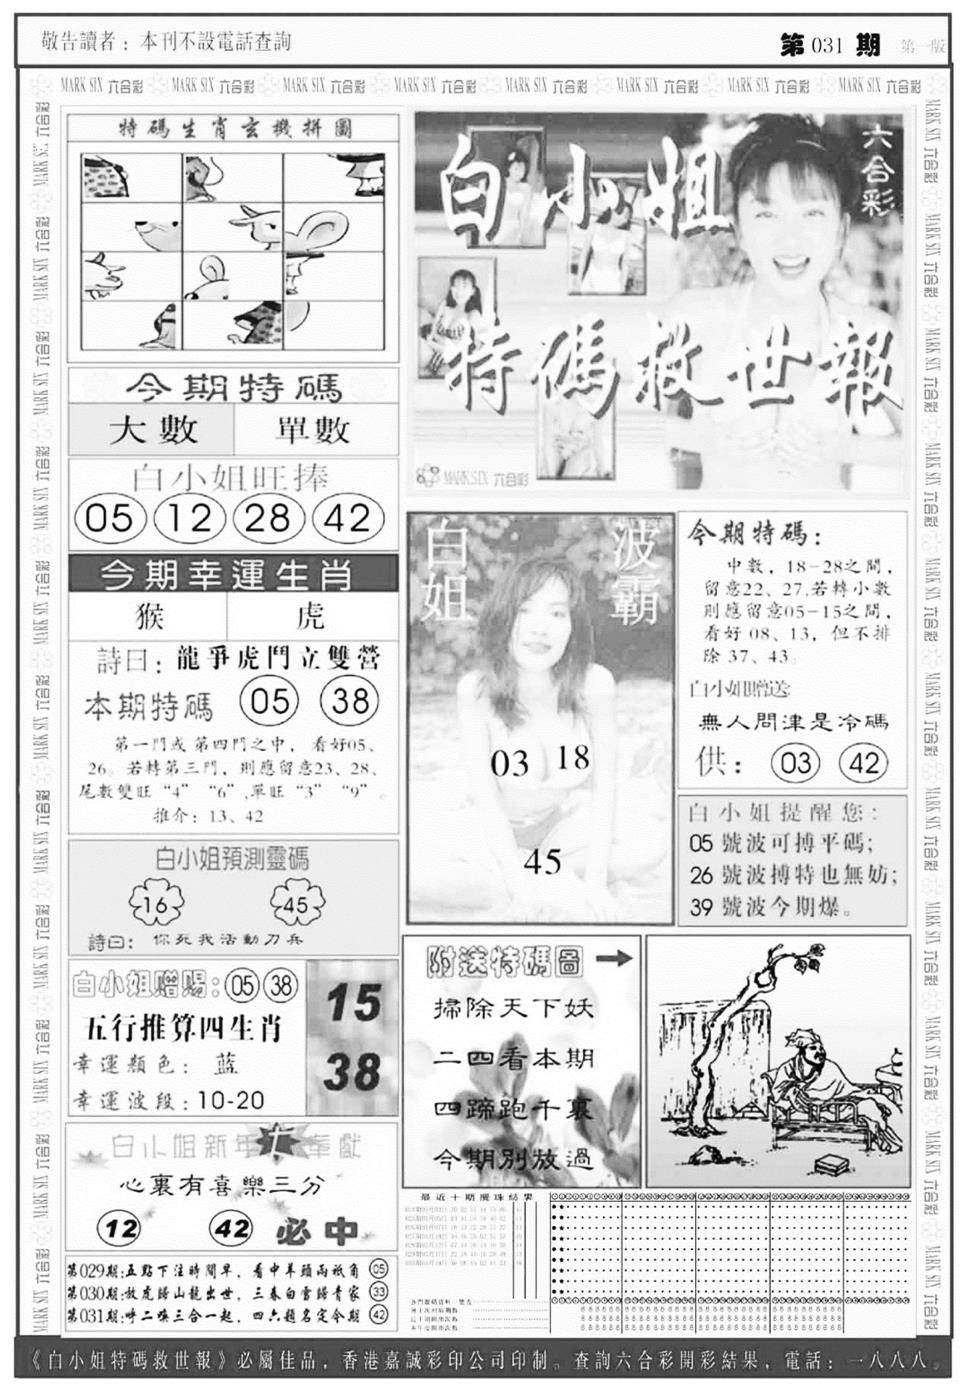 敬告讀者：本刊不設電話查詢
第 031 期 第一版
MARK SIX 六合彩 MARK SIX 六合彩 MARK SIX 六合彩 MARK SIX 六合彩 MARK SIX 六合彩 MARK SIX 六合彩 MARK SIX 六合彩 MARK SIX 六合彩
特碼生肖玄機拼圖
今期特碼
大數 單數
白小姐旺捧
05 12 28 42
今期幸運生肖
猴 虎
詩曰：龍爭虎鬥立雙營
本期特碼 05 38
第一門或第四門之中，看好05、
26。若轉第三門，則應留意23、28、
尾數雙旺“4”“6”,單旺“3”“9”。
推介：13、42
白小姐預測靈碼
16 45
詩曰：你死我活動刀兵
白小姐贈賜：05 38
五行推算四生肖
幸運顏色：蓝
幸運波段：10-20
15
38
白小姐新年 奉獻
心裏有喜樂三分
12 42 必中
第029期:五點下注時間早，看中羊頭兩祇角 05
第030期:放虎歸山龍出世，三春白雪歸青家 33
第031期:呼二喚三合一起，四六題名定今期 42
六合彩
白小姐
特碼救世報
MARK SIX 六合彩
白姐
波霸
03 18
45
今期特碼：
中數，18-28之間，
留意22、27,若轉小數
則應留意05-15之間，
看好 08、13，但不排
除 37、43。
白小姐贈送:
無人問津是冷碼
供：03 42
白小姐提醒您：
05 號波可搏平碼；
26 號波搏特也無妨；
39 號波今期爆。
附送特碼圖
掃除天下妖
二四看本期
四蹄跑千裏
今期別放過
最近十期攪珠結果
《白小姐特碼救世報》必屬佳品，香港嘉誠彩印公司印制。查詢六合彩開彩結果，電話：一八八八。